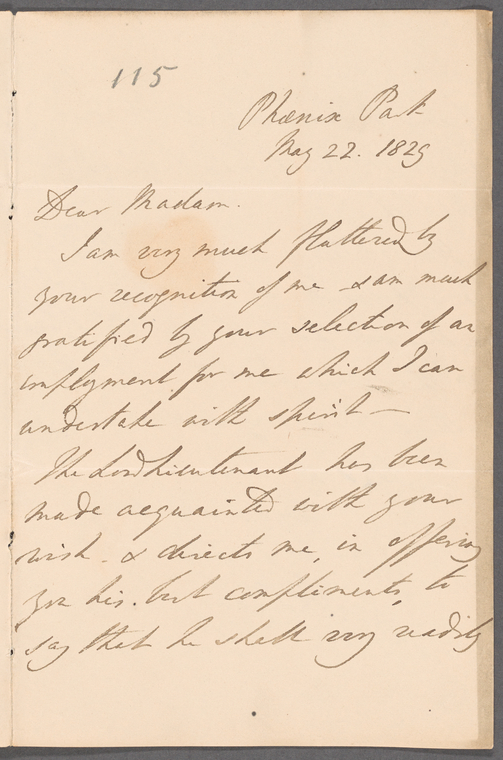 115
Phœnix Park
May 22. 1829
Dear Madam.
I am very much flattered by
your recognition of me & am much
gratified by your selection of an
employment for me which I can
undertake with spirit —
The Lord Lieutenant has been
made acquainted with your
wish. & directs me, in offering
you his best compliments, to
say that he shall very readily